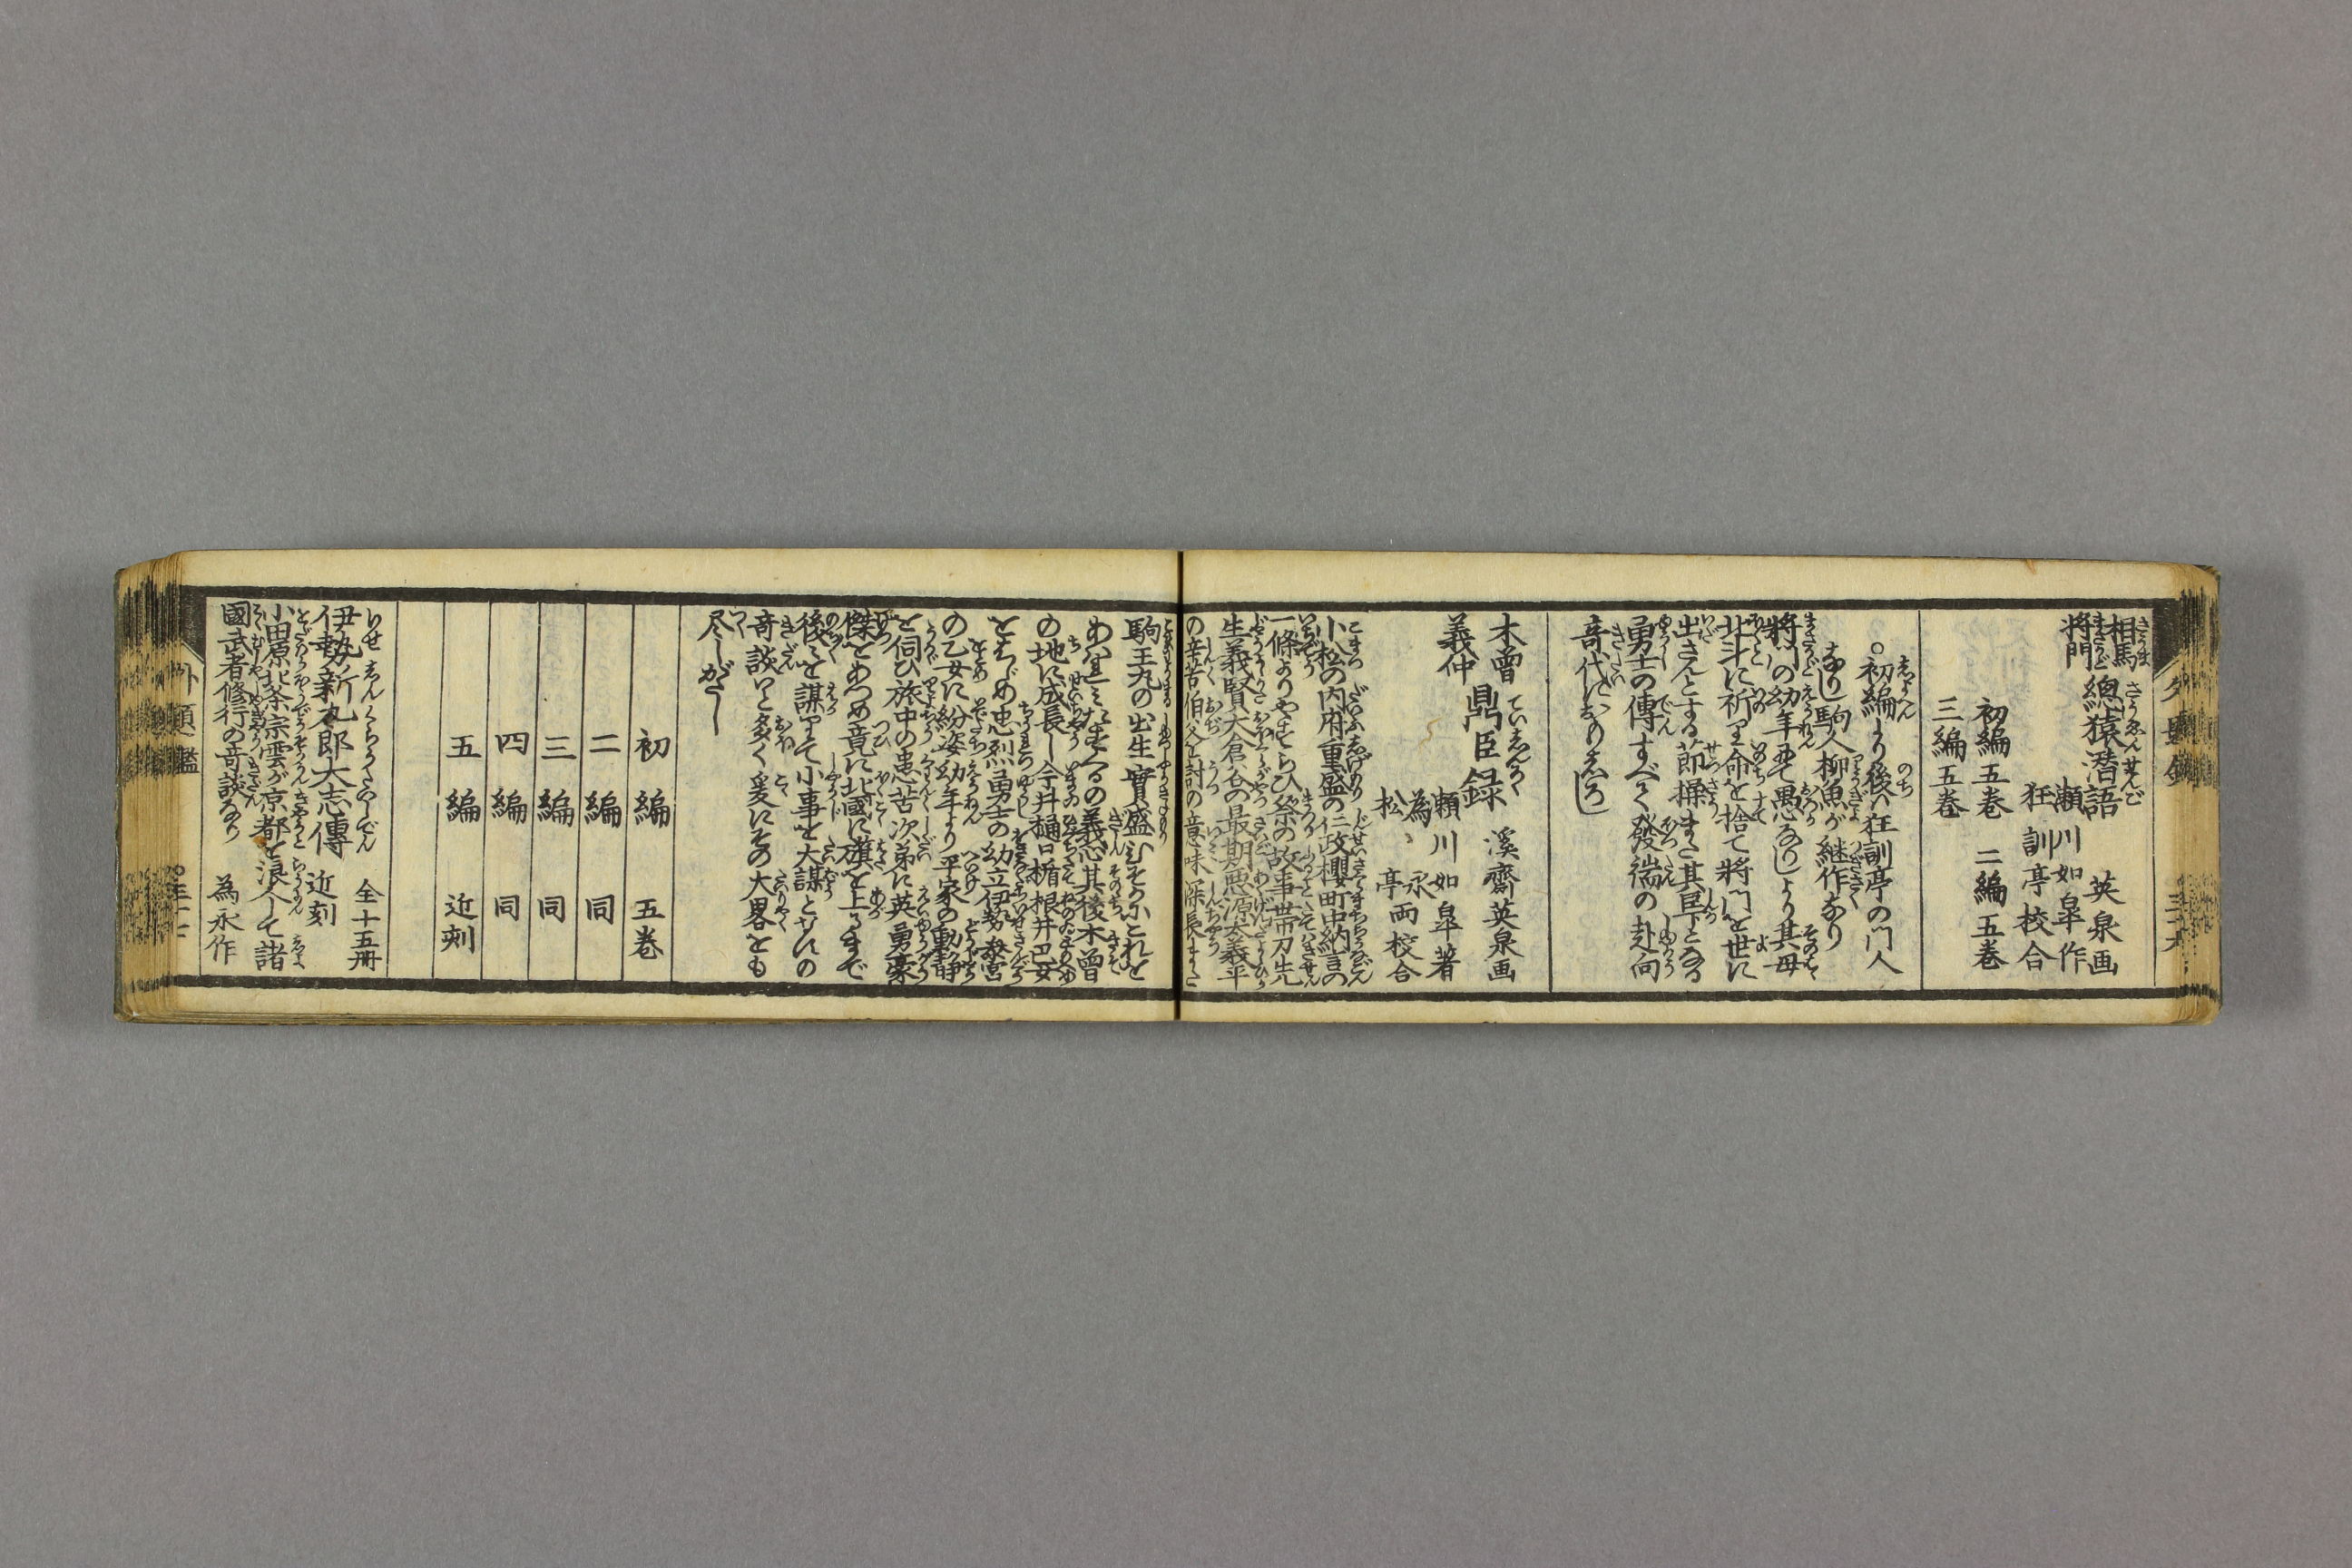 相馬
将門
總猿潜語 英泉画
瀬川如皐作
狂訓亭校合
初編五巻 二編五巻
三編五巻
○初編より後ハ狂訓亭の門人
なりし駒人柳魚が継作なり
将門の幼年にて愚なりしより其母
北斗に祈り命を捨て将門を世に
出さんとする節操また其臣下となる
勇士の傳すべて發端の赴向
竒代におもしろし
木曽
義仲
鼎臣録 溪齋英泉画
瀬川如皐著
為永
松亭両校合
小松の内府重盛の仁政櫻町中納言の
一條よりやすらひ祭の故事帯刀先
生義賢大倉谷の最期悪源太義平
の辛苦伯父を討の意味深長また
駒王丸の出生實盛ひそかにこれを
あはれみたすくるの義心其後木曽
の地に成長し今井樋口楯根井巴女
をはじめ忠烈勇士の幼立伊勢齋宮
の乙女に紛姿幼年より平家の動静
を伺ひ旅中の患苦次第に英勇豪
傑をあつめ竟に北國に旗を上るまで
後々を謀りて小事を大謀となすの
竒談いと多く爰にその大畧をも
尽しがたし
初編 五巻
二編 同
三編 同
四編 同
五編 近刻
伊勢新九郎大志傳 近刻 全十五冊
小田原北条宗雲が京都を浪人して諸
國武者修行の竒談なり 為永作